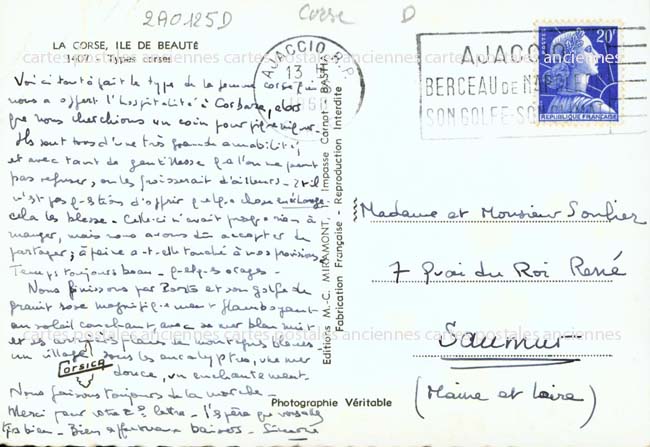 2A0125D
Corse
D
LA CORSE, ILE DE BEAUTÉ
1407 Types corses
Voici tout à fait le type de la jeune corse qui
nous a offert l'hospitalité à Corbara, alors
que nous cherchions un coin pour pique-niquer.
Ils sont tous d'une très grande amabilité,
et avec tant de gentillesse que l'on ne peut
pas refuser, on les froisserait d'ailleurs. Et il
n'est pas question d'offrir quelque chose en échange
cela les blesse. Celle-ci n'avait presque rien à
manger, mais nous avons dû accepter de
partager; à peine a-t-elle touché à nos provisions.
Temps toujours beau - quelques orages.
Nous finissons par Porto et son golfe de
granit rose magnifiquement flamboyant
au soleil couchant avec sa mer bleu nuit
et ses arrières plans de montagnes bleues.
un village sous les eucalyptus, une mer
douce, un enchantement.
CORSICA
Nous faisons toujours de la marche.
Merci pour votre 2e lettre - J'espère que vous allez
très bien - Bien affectueux baisers - Simone
Editions M.-C. MIRAMONT, Impasse Carnot - BASTIA
Fabrication Française - Reproduction Interdite
Photographie Véritable
AJACCIO R.P.
13
AJACCIO
BERCEAU DE
SON GOLFE
20F
POSTES
REPUBLIQUE FRANÇAISE
Madame et Monsieur Soulier
7 Quai du Roi René
Saumur
(Maine et Loire)
cartes postales anciennes